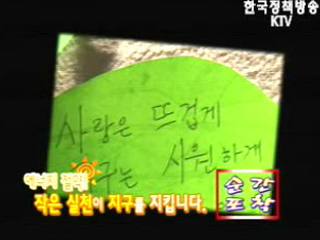 한국정책방송
KTV
사랑은 뜨겁게
구는 시원하게
에너지 절약!
작은 실천이 지구를 지킵니다.
순간
포착